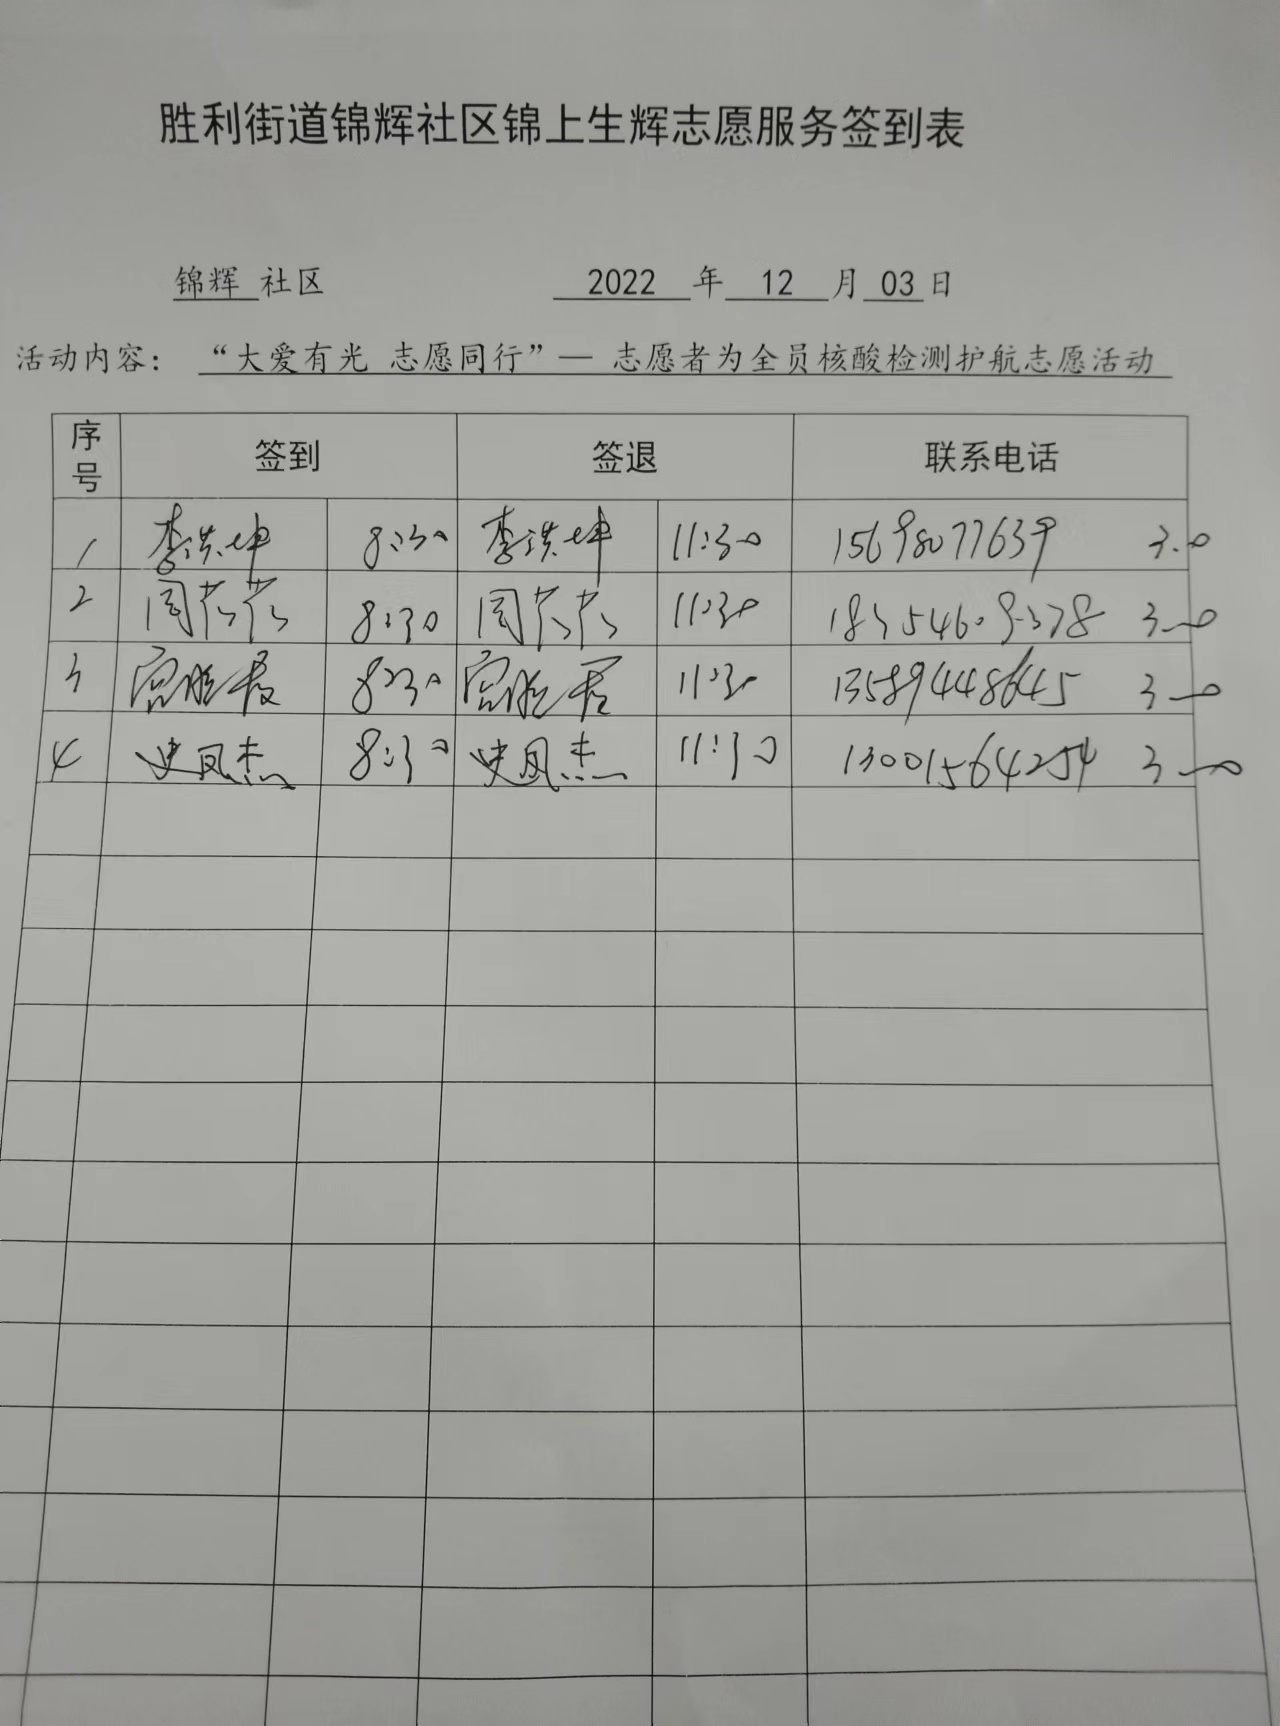 胜利街道锦辉社区锦上生辉志愿服务签到表
锦辉 社区 2022 年 12 月 03 日
活动内容： “大爱有光 志愿同行”— 志愿者为全员核酸检测护航志愿活动
序号 签到 签退 联系电话
1 李洪坤 8:30 李洪坤 11:30 15698077639 3.0
2 周芹芹 8:30 周芹芹 11:30 3.0
3 宫胜君 8:30 宫胜君 11:30 13589448645 3.0
4 史凤杰 8:30 史凤杰 11:30 13001564254 3.0